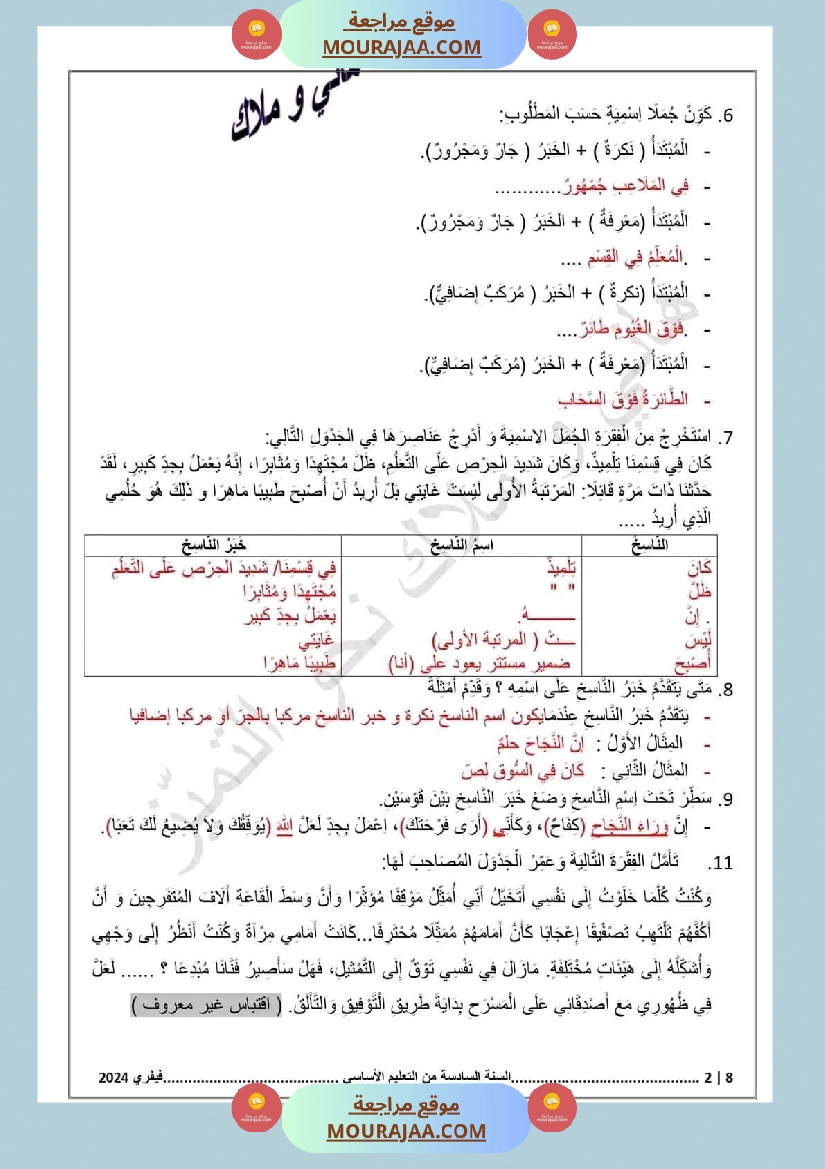 موقع مراجعة
MOURAJAA.COM
هاني و ملاك
6. كَوِّنْ جُمَلًا اِسْمِيَّةٍ حَسَبَ المَطْلُوبِ:
- الْمُبْتَدَأُ ( نَكرَةٌ ) + الخَبَرُ ( جَارٌ وَمَجْرُورٌ).
- فِي المَلَاعِبِ جُمْهُورٌ............
- الْمُبْتَدَأُ (مَعْرِفَةٌ ) + الخَبَرُ ( جَارٌ وَمَجْرُورٌ).
- .الْمُعَلِّمُ فِي القِسْمِ ....
- الْمُبْتَدَأُ (نكرةٌ ) + الخَبَرُ ( مُرَكَبٌ إِضَافِيٌّ).
- .فَوْقَ الغُيُومِ طَائِرٌ....
- الْمُبْتَدَأُ (مَعْرِفَةٌ ) + الخَبَرُ (مُرَكَبٌ إِضَافِيٌّ).
- الطَّائِرَةُ فَوْقَ السَّحَابِ
7. اسْتَخْرِجْ مِنَ الْفِقرَةِ الجُمَلَ الاِسْمِيَةَ وَ أَدْرِجْ عَنَاصِرَهَا فِي الجَدْوَلِ التَّالِي:
كَانَ فِي قِسْمِنَا تِلْمِيذٌ، وَكَانَ شَدِيدَ الحِرْصِ عَلَى التَّعَلُّمِ، ظَلَّ مُجْتَهِدًا وَمُثَابِرًا، إِنَّهُ يَعْمَلُ بِجِدٍّ كَبِيرٍ، لَقَدْ
حَدَّثَنَا ذَاتَ مَرَّةٍ قَائِلًا: المَرْتَبَةُ الأُولَى لَيْسَتْ غَايَتِي بَلْ أُرِيدُ أَنْ أُصْبِحَ طَبِيبًا مَاهِرًا و ذَلِكَ هُوَ حُلْمِي
الَّذِي أُرِيدُ .....
النَّاسِخُ اسِمُ النَّاسِخِ خَبَرُ النَّاسِخِ
كَانَ تِلْمِيذٌ فِي قِسْمِنَا/ شَدِيدَ الحِرْصِ عَلَى التَّعَلُّمِ
ظَلَّ " " مُجْتَهِدًا وَمُثَابِرًا
. إِنَّ ـــــــهُ. يَعْمَلُ بِجِدٍّ كَبِيرٍ
لَيْسَ ــــتْ ( المرتبة الأولى) غَايَتِي
أَصْبَحَ ضمير مستتر يعود على (أنا) طَبِيبًا مَاهِرًا
8. مَتَى يَتَقَدَّمُ خَبَرُ النَّاسِخِ عَلَى اِسْمِهِ ؟ وَقَدِّمْ أَمْثِلَةً
- يَتَقَدَّمُ خَبَرُ النَّاسِخِ عِنْدَمَايكون اسم الناسخ نكرة و خبر الناسخ مركبا بالجرّ أو مركبا إضافيا
- المِثَالُ الأَوَّلُ : إِنَّ النَّجَاحَ حلمٌ
- المِثَالُ الثَّانِي : كَانَ فِي السُّوقِ لصّ
9. سَطِّرْ تَحْتَ اِسْمِ النَّاسِخِ وَضَعْ خَبَرَ النَّاسِخِ بَيْنَ قَوْسَيْنِ.
- إِنَّ وَرَاءَ النَّجَاحِ (كِفَاحٌ)، وَكَأَنِّي (أَرَى فَرْحَتَكَ)، اِعْمَلْ بِجِدٍّ لَعَلَّ اللهَ (يُوَفِّقُكَ وَلَا يُضِيعُ لَكَ تَعَبًا).
11. تَأَمَّلِ الفِقْرَةَ التَّالِيَةَ وَعَمِّرْ الْجَدْوَلَ المُصَاحِبَ لَهَا:
وَكُنْتُ كُلَّمَا خَلَوْتُ إِلَى نَفْسِي أَتَخَيَّلُ أَنِّي أُمَثِّلُ مَوْقِفًا مُؤَثِّرًا وَأَنَّ وَسَطَ القَاعَةِ آلَافَ المُتَفَرِجِينَ وَ أَنَّ
أَكُفَّهُمْ تَلْتَهِبُ تَصْفِيقًا إِعْجَابًا كَأَنَّ أَمَامَهُمْ مُمَثِّلًا مُحْتَرِفًا...كَانَتْ أَمَامِي مِرْآةٌ وَكُنْتُ أَنْظُرُ إِلَى وَجْهِي
وَأُشَكِّلُهُ إِلَى هَيْئَاتٍ مُخْتَلِفَةٍ. مَازَالَ فِي نَفْسِي تَوْقٌ إِلَى التَّمْثِيلِ، فَهَلْ سَأَصِيرُ فَنَّانًا مُبْدِعًا ؟ ...... لَعَلَّ
فِي ظُهُورِي مَعَ أَصْدِقَائِي عَلَى الْمَسْرَحِ بِدَايَةَ طَرِيقِ الْتَّوْفِيقِ وَالتَّأَلُقْ. ( اقتباس غير معروف )
هاني و ملاك نحو التميّز
2 | 8 .............................................السنة السادسة من التعليم الأساسي ..........................................فيفري 2024
موقع مراجعة
MOURAJAA.COM